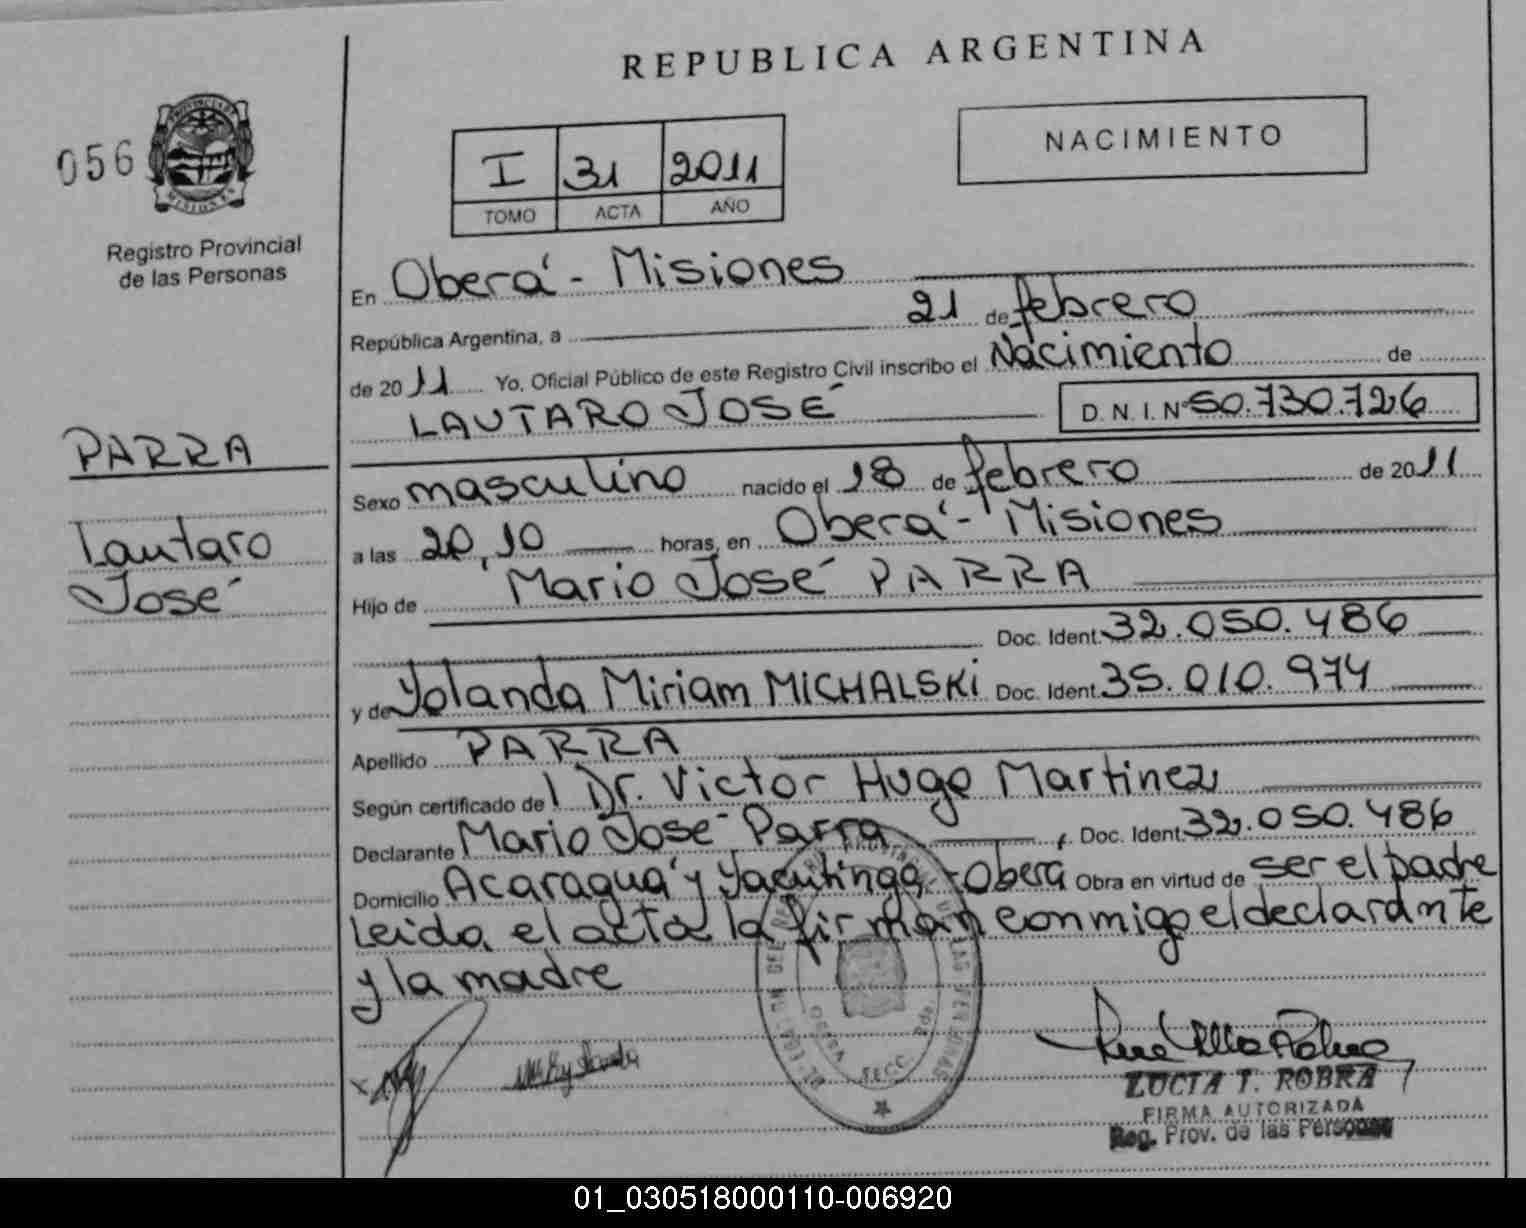 REPUBLICA ARGENTINA
056
PROVINCIA DE
MISIONES
Registro Provincial
de las Personas
I 31 2011
TOMO ACTA AÑO
NACIMIENTO
En Oberá - Misiones
República Argentina, a 21 de febrero
de 2011 Yo, Oficial Público de este Registro Civil inscribo el Nacimiento de
LAUTARO JOSÉ D.N.I. Nº 50.730.726
PARRA
Lautaro
José
Sexo masculino nacido el 18 de febrero de 2011
a las 20,10 horas, en Oberá - Misiones
Hijo de Mario José PARRA
Doc. Ident. 32.050.486
y de Yolanda Miriam MICHALSKI Doc. Ident. 35.010.974
Apellido PARRA
Según certificado del Dr. Victor Hugo Martinez
Declarante Mario José Parra Doc. Ident. 32.050.486
Domicilio Acaraguá y Yacutinga - Oberá Obra en virtud de ser el padre
Leida el acta la firman conmigo el declarante
y la madre
SECC.
LUCIA T. ROBRA
FIRMA AUTORIZADA
Reg. Prov. de las Personas
01_030518000110-006920